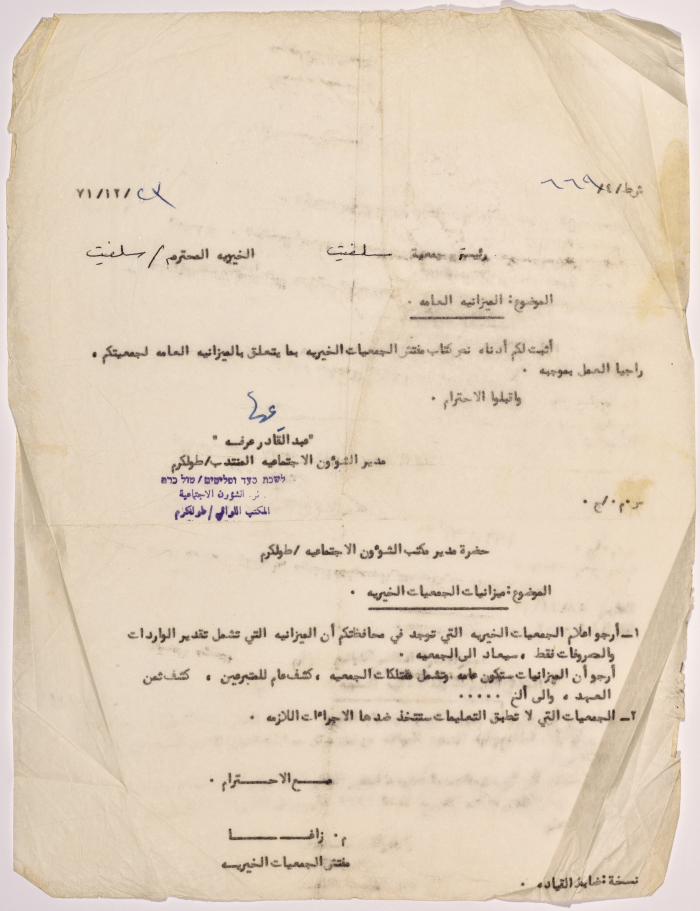 شرط/٤/٦٦٩ ٧١/١٢/٢٣
رئيسة جمعية سلفيت الخيريه المحترم/سلفيت
الموضوع: الميزانيه العامه ٠
أثبت لكم أدناه نص كتاب مفتش الجمعيات الخيريه بما يتعلق بالميزانيه العامه لجمعيتكم ،
راجيا العمل بموجبه ٠
واقبلوا الاحترام ٠
"عبد القادر عرفه"
مدير الشوؤن الاجتماعيه المنتدب/طولكرم
לשכת סעד ופליטים/טול כרם
الشؤون الاجتماعية
المكتب اللوائي/طولكرم
س٠م٠/ج ٠
حضرة مدير مكتب الشوؤن الاجتماعيه /طولكرم
الموضوع: ميزانيات الجمعيات الخيريه ٠
١ــ أرجو اعلام الجمعيات الخيريه التي توجد في محافظتكم أن الميزانيه التي تشمل تقدير الواردات
والمصروفات فقط ، سيعاد الى الجمعيه ٠
أرجو أن الميزانيات ستكون عامه وتشمل ممتلكات الجمعيه ، كشف عام للمتبرعين ، كشف ثمن
العهد ، والى ألخ ٠٠٠٠٠
٢ــ الجمعيات التي لا تطبق التعليمات ستتخذ ضدها الاجراءات اللازمه ٠
مــع الاحــترام ٠
م٠ زاغــا
مفتش الجمعيات الخيريــه
نسخة: ضابط القياده ٠